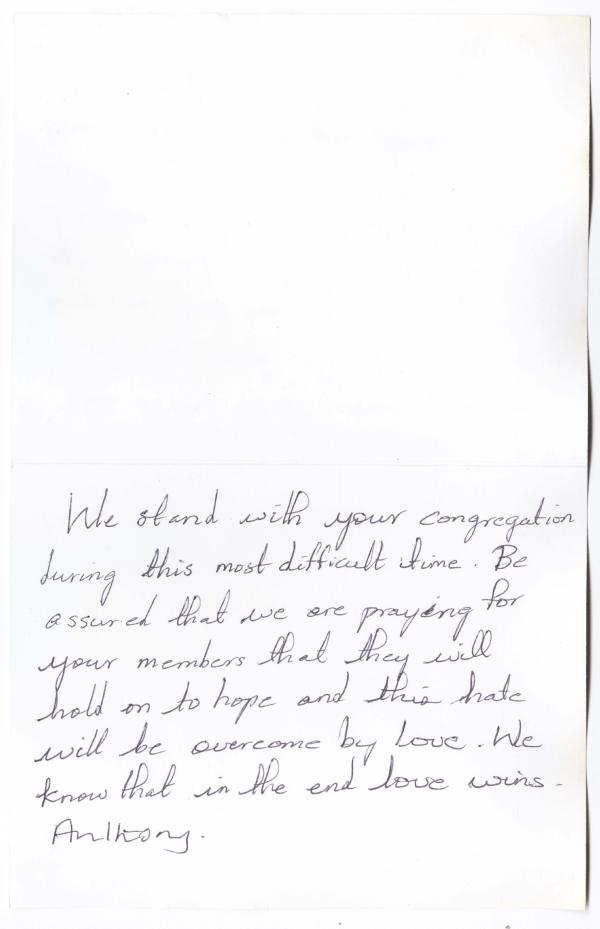 We stand with your congregation
during this most difficult time. Be
assured that we are praying for
your members that they will
hold on to hope and this hate
will be overcome by Love. We
know that in the end love wins.
Anthony.